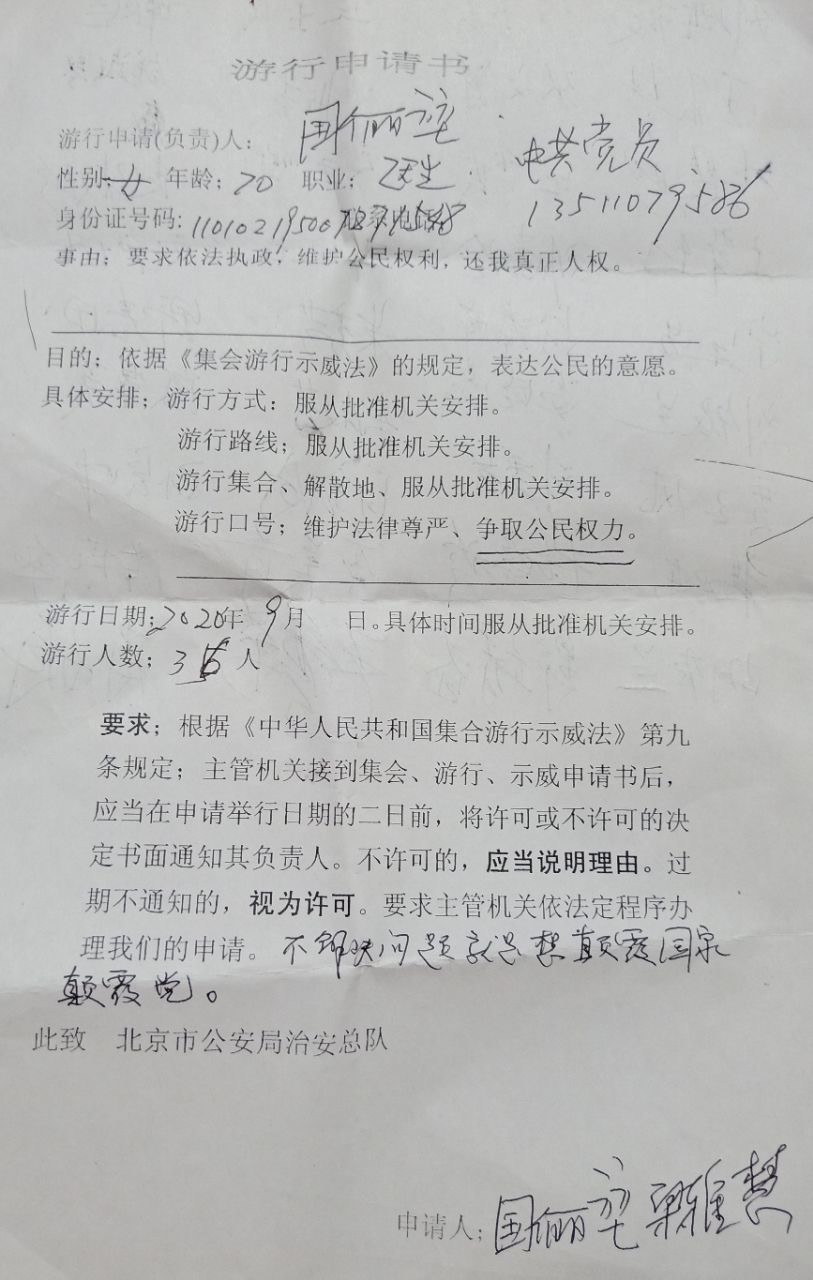 游行申请书
游行申请(负责)人: 国俪
中共党员
性别:女 年龄;70 职业: 医生
13511079586
身份证号码: 1101021950
事由;要求依法执政,维护公民权利,还我真正人权。
目的;依据《集会游行示威法》的规定,表达公民的意愿。
具体安排;游行方式:服从批准机关安排。
游行路线;服从批准机关安排。
游行集合、解散地、服从批准机关安排。
游行口号;维护法律尊严、争取公民权力。
游行日期;2020年 9月 日。具体时间服从批准机关安排。
游行人数;3 人
要求;根据《中华人民共和国集合游行示威法》第九
条规定;主管机关接到集会、游行、示威申请书后,
应当在申请举行日期的二日前,将许可或不许可的决
定书面通知其负责人。不许可的,应当说明理由。过
期不通知的,视为许可。要求主管机关依法定程序办
理我们的申请。不解决问题就是想颠覆国家
颠覆党。
此致 北京市公安局治安总队
申请人;国俪 梁雅慧